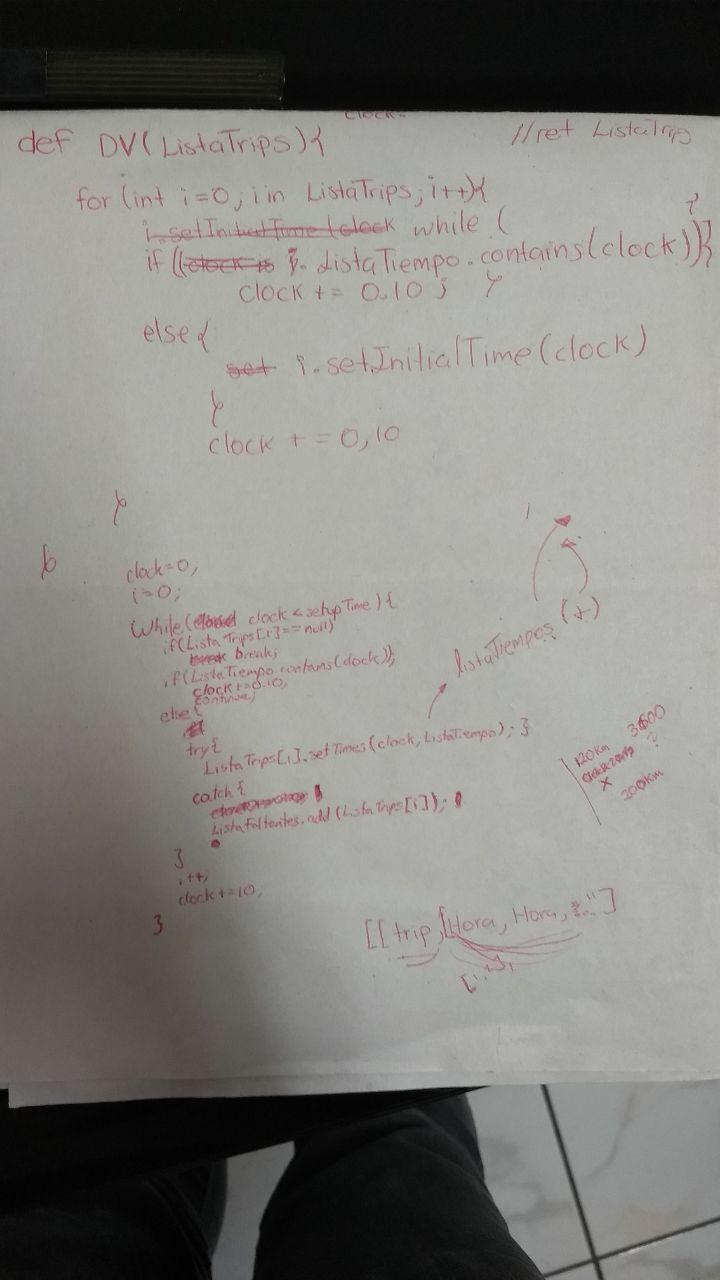 clock
def DV(ListaTrips){ //ret ListaTrip
for (int i=0; i in ListaTrips; i++){
i.setInitialTime (clock while (
if ((clock is i. listaTiempo.contains(clock)){
clock += 0.10; }
else{
set i.setInitialTime(clock)
}
clock += 0,10
}
clock=0;
i=0;
While( clock < setupTime){
if(ListaTrips[i]==null)
break break;
if(ListaTiempo.contains(clock)){
clock+=0.10;
continue;
else{
try{
ListaTrips[i].setTimes(clock,ListaTiempo); }
catch{
ListaFaltantes.add(ListaTrips[i]);
}
i++;
clock+=10;
}
listaTiempos (+)
120Km 3600
?
x 200Km
[[trip,[Hora, Hora, "]